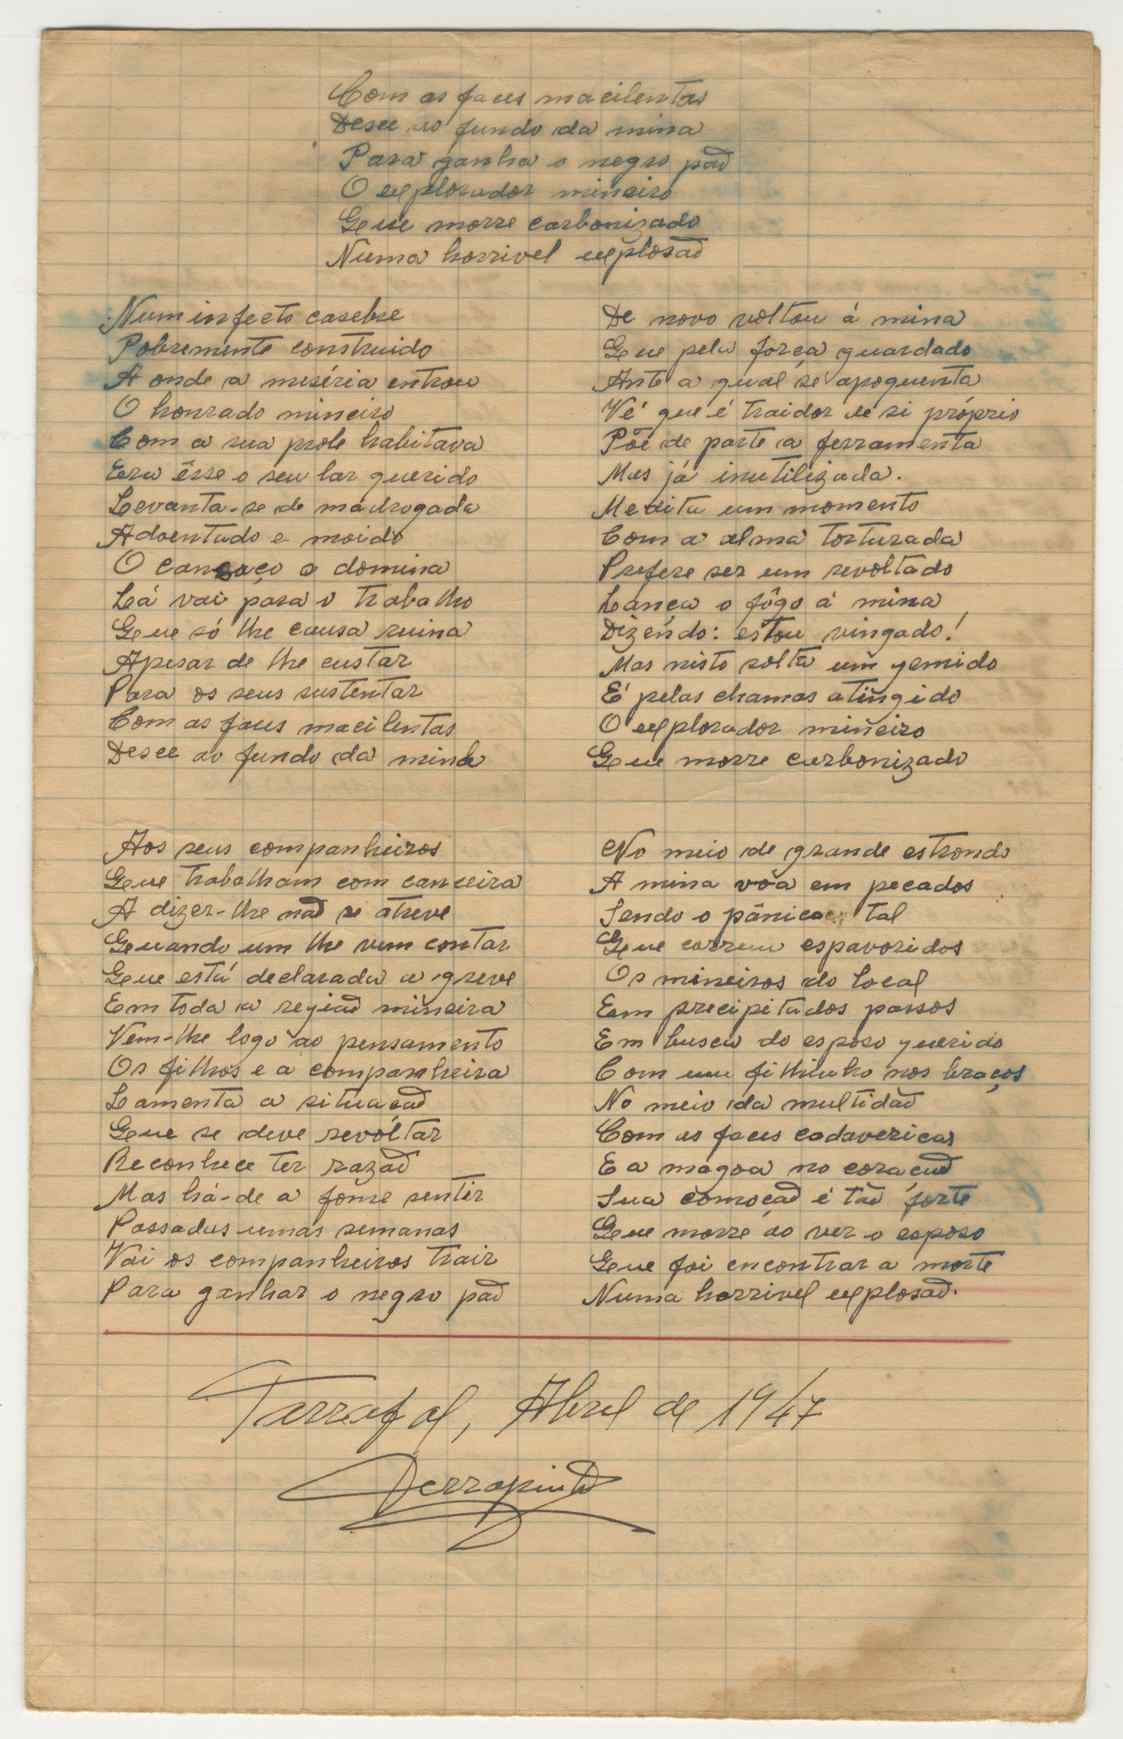 Com as faces macilentas
Desce ao fundo da mina
Para ganha o negro pão
O explorador mineiro
Que morre carbonizado
Numa horrivel explosão
Num infecto casebre
Pobremente construido
A onde a miséria entrou
O honrado mineiro
Com a sua prole habitava
Era êsse o seu lar querido
Levanta-se de madrugada
Adoentado e moido
O cansaço o domina
Lá vai para o trabalho
Que só lhe causa ruina
Apesar de lhe custar
Para os seus sustentar
Com as faces macilentas
Desce ao fundo da mina
Aos seus companheiros
Que trabalham com canceira
A dizer-lhe não se atreve
Quando um lhe vem contar
Que está declarada a greve
Em toda a região mineira
Vem-lhe logo ao pensamento
Os filhos e a companheira
Lamenta a situação
Que se deve revoltar
Reconhece ter razão
Mas há-de a fome sentir
Passadas umas semanas
Vai os companheiros trair
Para ganhar o negro pão
De novo voltou á mina
Que pela força guardado
Ante a qual se apoquenta
Vê que é traidor de si próprio
Põe de parte a ferramenta
Mas já inutilizada.
Medita um momento
Com a alma torturada
Prefere ser um revoltado
Lança o fôgo á mina
Dizendo: estou vingado!
Mas nisto solta um gemido
E' pelas chamas atingido
O explorador mineiro
Que morre carbonizado
No meio de grande estrondo
A mina vôa em pecados
Sendo o pânico tal
Que correm espavoridos
Os mineiros do local
Em precipitados passos
Em busca do esposo querido
Com um filhinho nos braços
No meio da multidão
Com as faces cadavericas
E a mágoa no coração
Sua comoção é tão forte
Que morre ao ver o esposo
Que foi encontrar a morte
Numa horrivel explosão.
Tarrafal, Abril de 1947